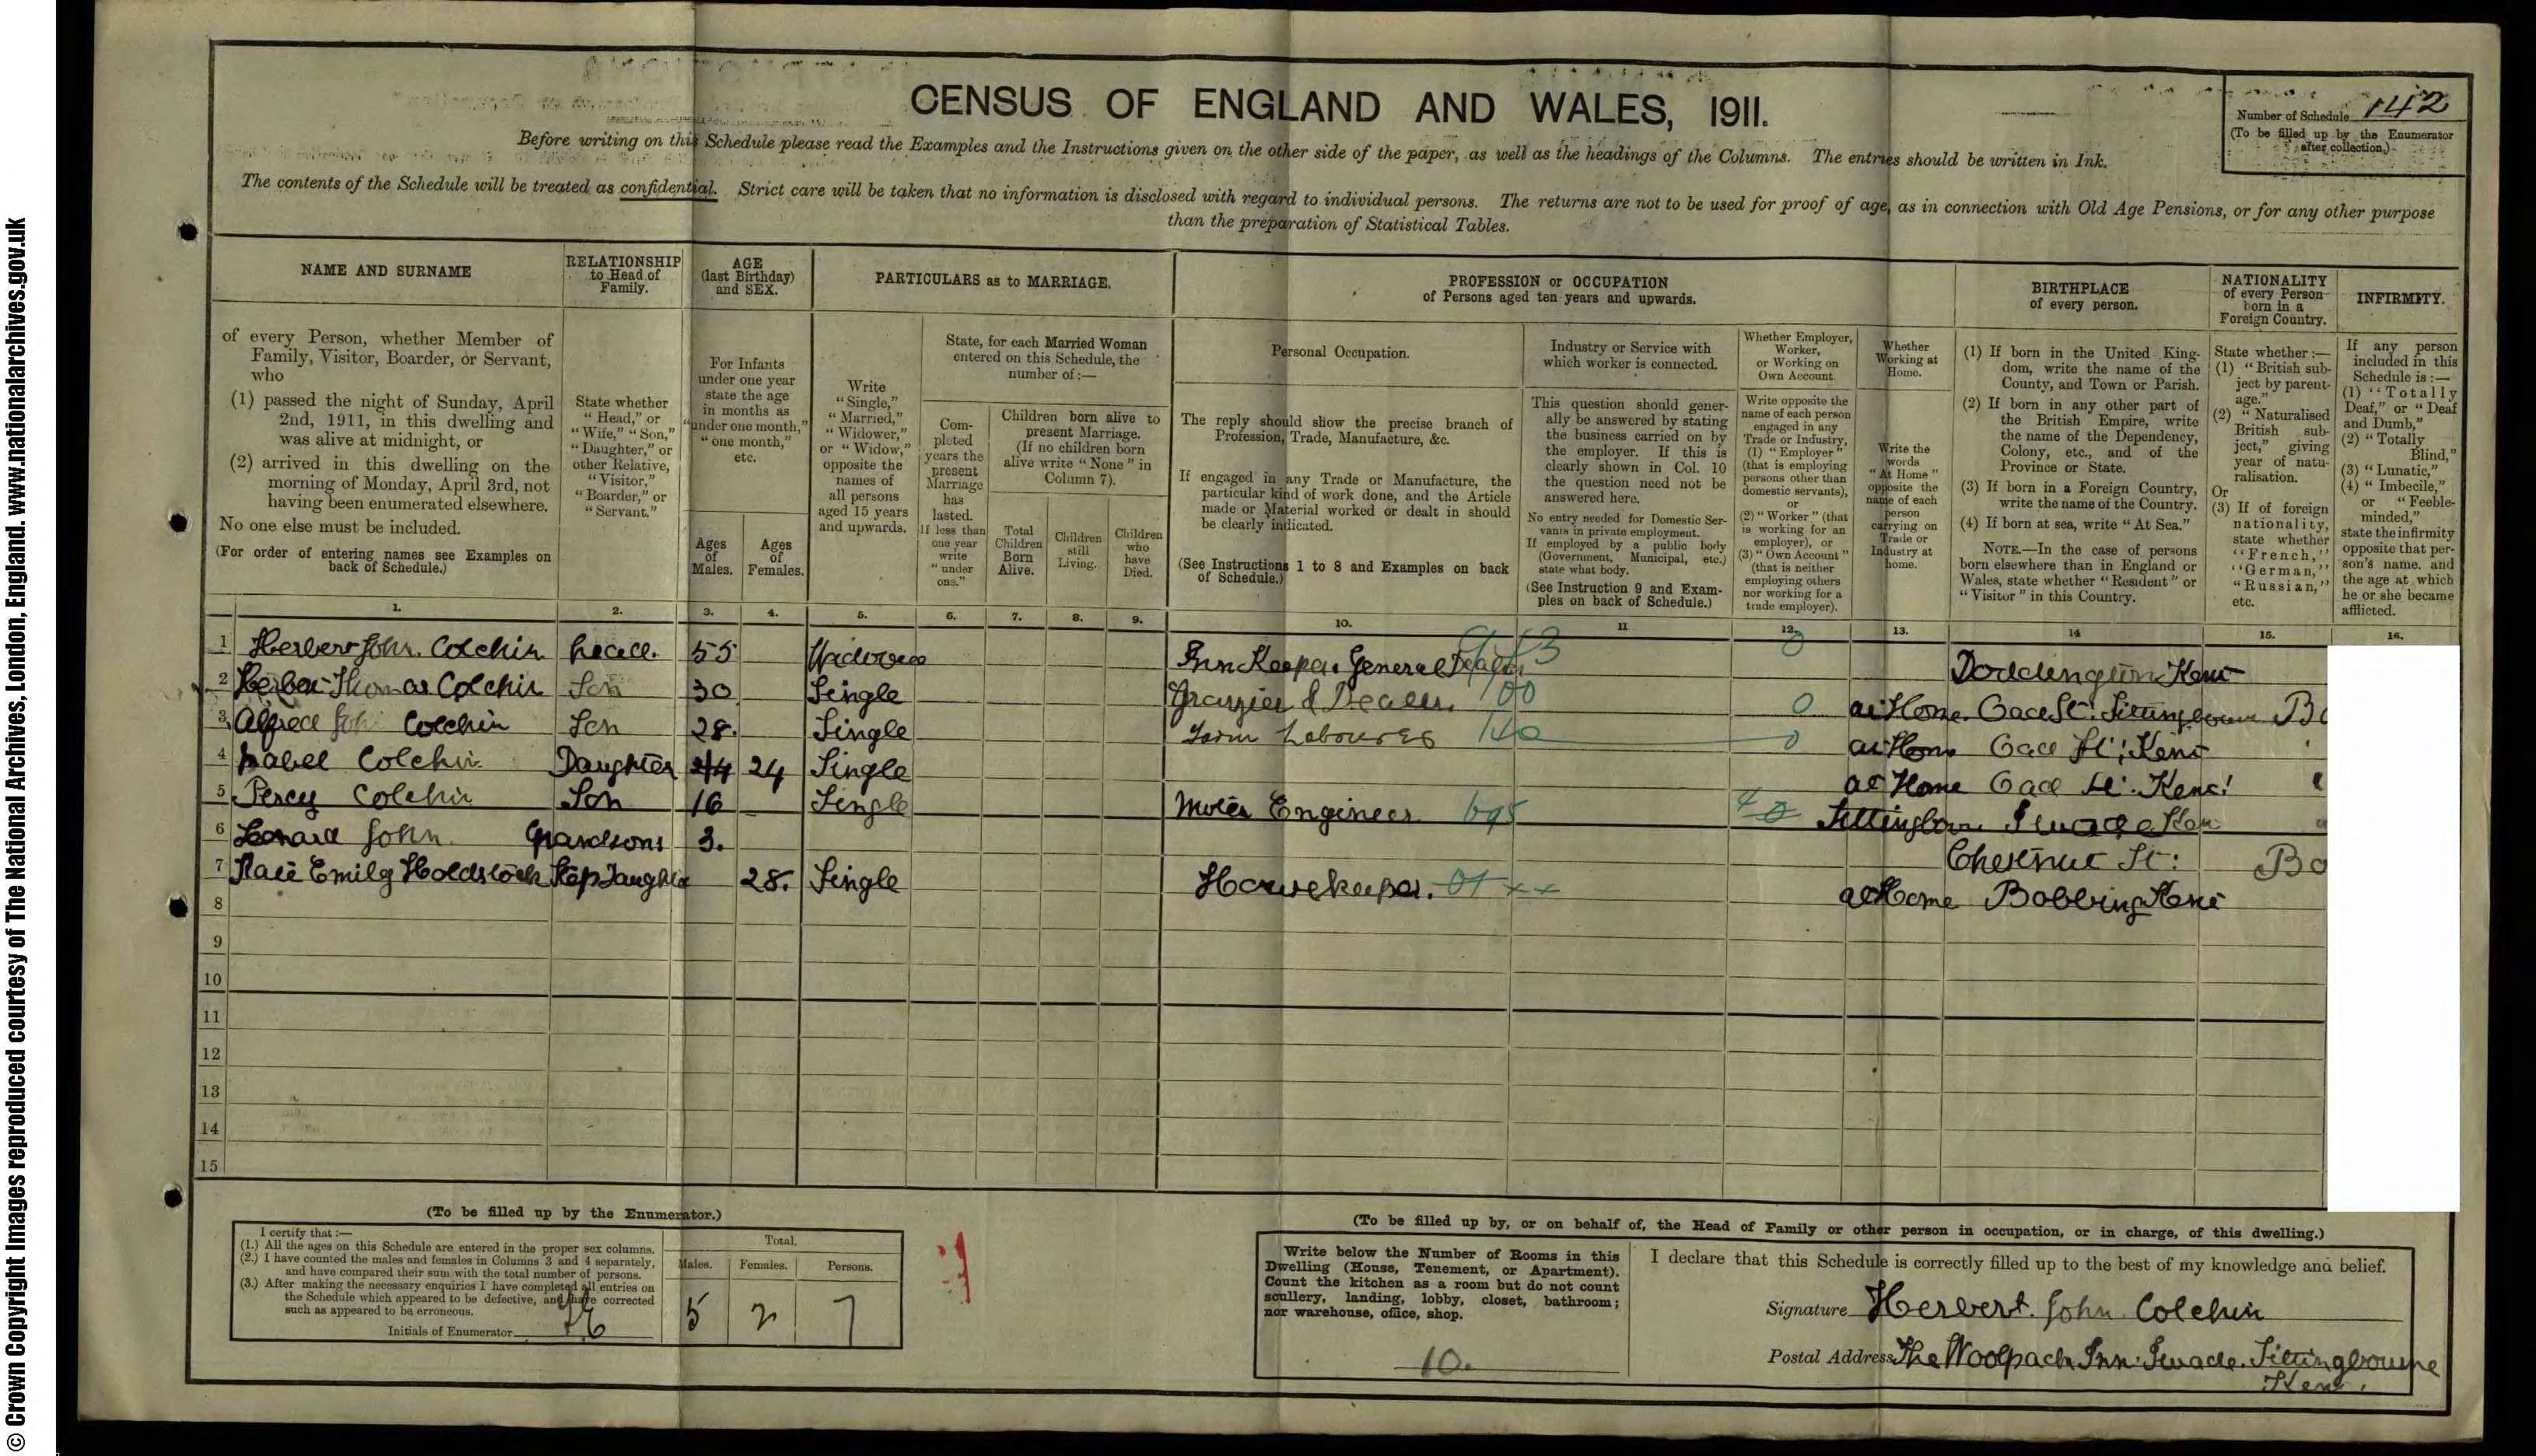 © Crown Copyright Images reproduced courtesy of The National Archives, London, England. www.nationalarchives.gov.uk
CENSUS OF ENGLAND AND WALES, 1911.
Number of Schedule 142
(To be filled up by the Enumerator after collection.)
Before writing on this Schedule please read the Examples and the Instructions given on the other side of the paper, as well as the headings of the Columns. The entries should be written in Ink.
The contents of the Schedule will be treated as confidential. Strict care will be taken that no information is disclosed with regard to individual persons. The returns are not to be used for proof of age, as in connection with Old Age Pensions, or for any other purpose
than the preparation of Statistical Tables.
NAME AND SURNAME
of every Person, whether Member of
Family, Visitor, Boarder, or Servant,
who
(1) passed the night of Sunday, April
2nd, 1911, in this dwelling and
was alive at midnight, or
(2) arrived in this dwelling on the
morning of Monday, April 3rd, not
having been enumerated elsewhere.
No one else must be included.
(For order of entering names see Examples on
back of Schedule.)
RELATIONSHIP
to Head of
Family.
State whether
"Head," or
"Wife," "Son,"
"Daughter," or
other Relative,
"Visitor,"
"Boarder," or
"Servant."
AGE
(last Birthday)
and SEX.
For Infants
under one year
state the age
in months as
"under one month,"
"one month,"
etc.
Ages
of
Males.
Ages
of
Females.
PARTICULARS as to MARRIAGE.
Write
"Single,"
"Married,"
"Widower,"
or "Widow,"
opposite the
names of
all persons
aged 15 years
and upwards.
State, for each Married Woman
entered on this Schedule, the
number of:—
Com-
pleted
years the
present
Marriage
has
lasted.
If less than
one year
write
"under
one."
Children born alive to
present Marriage.
(If no children born
alive write "None" in
Column 7).
Total
Children
Born
Alive.
Children
still
Living.
Children
who
have
Died.
PROFESSION or OCCUPATION
of Persons aged ten years and upwards.
Personal Occupation.
The reply should show the precise branch of
Profession, Trade, Manufacture, &c.
If engaged in any Trade or Manufacture, the
particular kind of work done, and the Article
made or Material worked or dealt in should
be clearly indicated.
(See Instructions 1 to 8 and Examples on back
of Schedule.)
Industry or Service with
which worker is connected.
This question should gener-
ally be answered by stating
the business carried on by
the employer. If this is
clearly shown in Col. 10
the question need not be
answered here.
No entry needed for Domestic Ser-
vants in private employment.
If employed by a public body
(Government, Municipal, etc.)
state what body.
(See Instruction 9 and Exam-
ples on back of Schedule.)
Whether Employer,
Worker,
or Working on
Own Account.
Write opposite the
name of each person
engaged in any
Trade or Industry,
(1) "Employer"
(that is employing
persons other than
domestic servants),
or
(2) "Worker" (that
is working for an
employer), or
(3) "Own Account"
(that is neither
employing others
nor working for a
trade employer).
Whether
Working at
Home.
Write the
words
"At Home"
opposite the
name of each
person
carrying on
Trade or
Industry at
home.
BIRTHPLACE
of every person.
(1) If born in the United King-
dom, write the name of the
County, and Town or Parish.
(2) If born in any other part of
the British Empire, write
the name of the Dependency,
Colony, etc., and of the
Province or State.
(3) If born in a Foreign Country,
write the name of the Country.
(4) If born at sea, write "At Sea."
NOTE.—In the case of persons
born elsewhere than in England or
Wales, state whether "Resident" or
"Visitor" in this Country.
NATIONALITY
of every Person
born in a
Foreign Country.
State whether:—
(1) "British sub-
ject by parent-
age."
(2) "Naturalised
British sub-
ject," giving
year of natu-
ralisation.
Or
(3) If of foreign
nationality,
state whether
"French,"
"German,"
"Russian,"
etc.
INFIRMITY.
If any person
included in this
Schedule is:—
(1) "Totally
Deaf," or "Deaf
and Dumb,"
(2) "Totally
Blind,"
(3) "Lunatic,"
(4) "Imbecile,"
or "Feeble-
minded,"
state the infirmity
opposite that per-
son's name, and
the age at which
he or she became
afflicted.
1. 2. 3. 4. 5. 6. 7. 8. 9. 10. 11 12. 13. 14 15. 16.
1 Herbert John. Colchin head. 55 Widower Inn Keeper. General Dealer 0 Doddington Kent
2 Herber Thomas Colchin Son 30 Single Grazier & Dealer. 100 0 at Home Gace St: Sittingbourn
3 Alfred John Colchin Son 28. Single Farm Labourer 140 0 at Home Gace St: Kent
4 Mabel Colchin Daughter 24 24 Single at Home Gace St: Kent
5 Percy Colchin Son 16 Single Moter Engineer 695 Sittingborn Iwade Ken
6 Leonard John Grandsons 3. Chestnut St:
7 Kate Emily Holdstock Step Daughter 28. Single Housekeeper. at Home Bobbing Kent
8
9
10
11
12
13
14
15
(To be filled up by the Enumerator.)
I certify that:—
(1.) All the ages on this Schedule are entered in the proper sex columns.
(2.) I have counted the males and females in Columns 3 and 4 separately,
and have compared their sum with the total number of persons.
(3.) After making the necessary enquiries I have completed all entries on
the Schedule which appeared to be defective, and have corrected
such as appeared to be erroneous.
Initials of Enumerator
Total.
Males. Females. Persons.
5 2 7
(To be filled up by, or on behalf of, the Head of Family or other person in occupation, or in charge, of this dwelling.)
Write below the Number of Rooms in this
Dwelling (House, Tenement, or Apartment).
Count the kitchen as a room but do not count
scullery, landing, lobby, closet, bathroom;
nor warehouse, office, shop.
10.
I declare that this Schedule is correctly filled up to the best of my knowledge and belief.
Signature Herbert John Colchin
Postal Address The Woolpack Inn. Iwade. Sittingbourne
Kent.